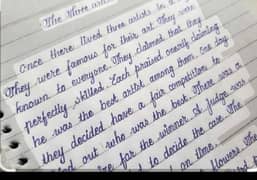 The Three artists
Once there lived three artists in a
They were famous for their art. They were
known to everyone. They claimed that they
perfectly skilled. Each praised overly claiming
he was the best artist among them. One day
they decided have a fair competitions to
out who was the best. There was
for the winner. A judge was
to decide the case. The
on time. flowers. The